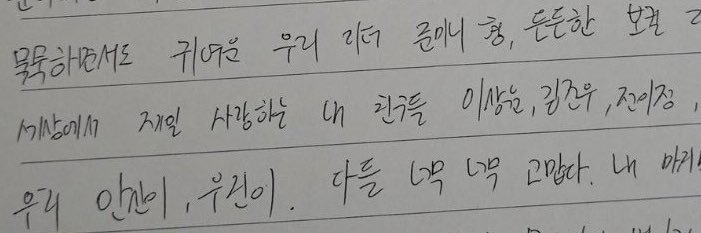 묵묵하면서도 귀여운 우리 리더 준미니 형, 든든한 보컬
세상에서 제일 사랑하는 내 친구들 이상민, 김진우, 전이정,
우리 안찬이, 우진이. 다들 너무 너무 고맙다. 내